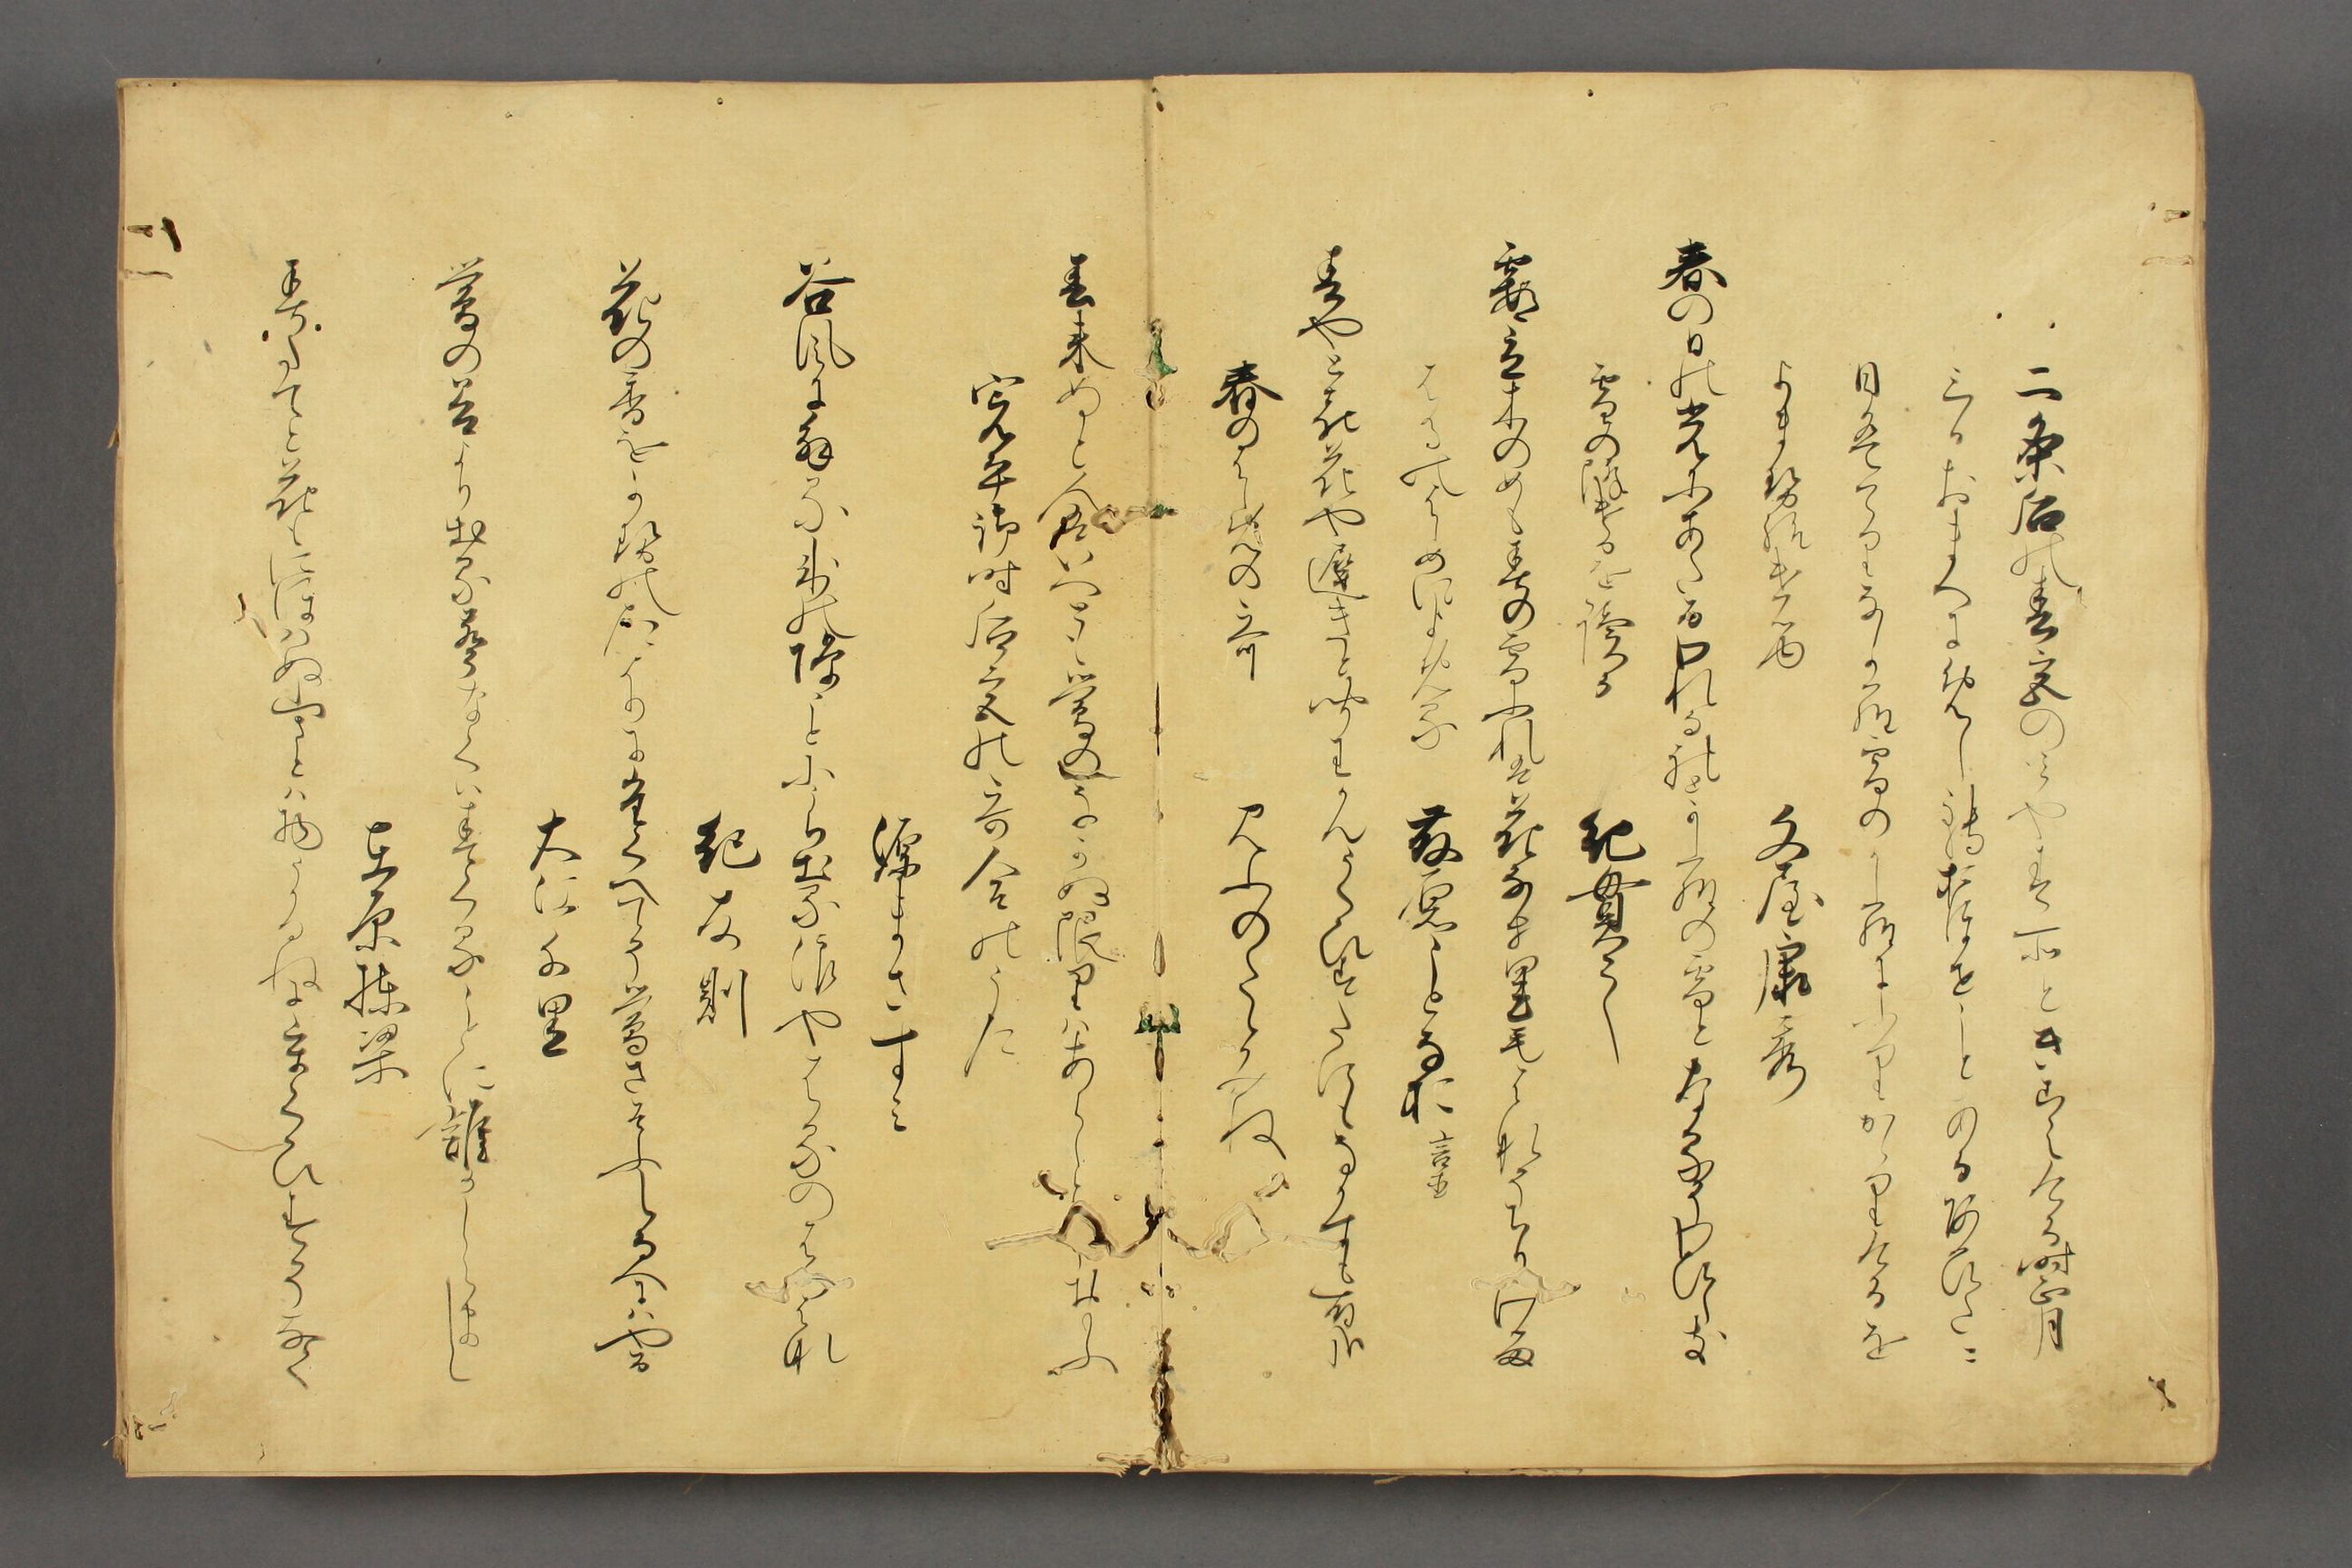 二条后の春宮のみやす所ときこえける時正月
三日おまへにめしておほせことのある間に
日はてりなから雪のかしらにふりかゝりけるを
よませ給ける 文屋康秀
春の日の光にあたる我なれとかしらの雪となるそわひしき
雪の降けるを読る 紀貫之
霞立木のめも春の雪ふれは花なき里も花そちりける
はるのはしめによめる 藤原ことなお 言直
春やとき花や遅きと聞わかんうくひすたにもなかすも有哉
春のはしめの哥 みふのたゝみね
春来ぬと人はいへとも鶯のなかぬ限はあらしとそおもふ
寛平御時后宮の哥合のうた
源まさすみ
谷風に解る氷の隙ことに打出る浪や春のはつはな
紀友則
花の香を風の便にたくへてそ鶯さそふしるへにはやる
大江千里
鶯の谷より出る声なくは春くることを誰かしらまし
在原棟梁
春たてと花もにほはぬ山さとは物うかるねに鶯そなく